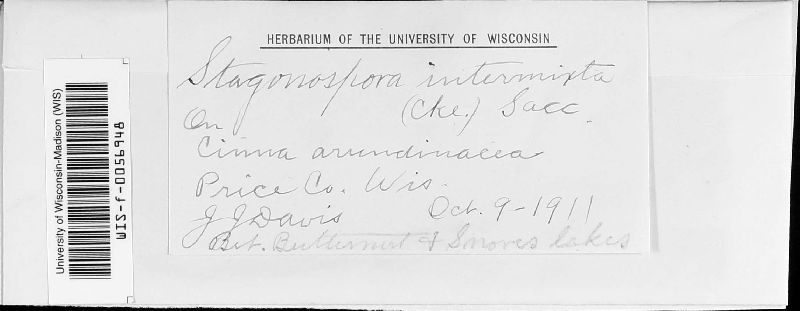 HERBARIUM OF THE UNIVERSITY OF WISCONSIN
Stagonospora intermixta
(Cke.) Sacc.
On
Cinna arundinacea
Price Co. Wis.
J J Davis Oct. 9-1911
Bet. Butternut & Snoves lakes
University of Wisconsin-Madison (WIS)
WIS-f-0056948